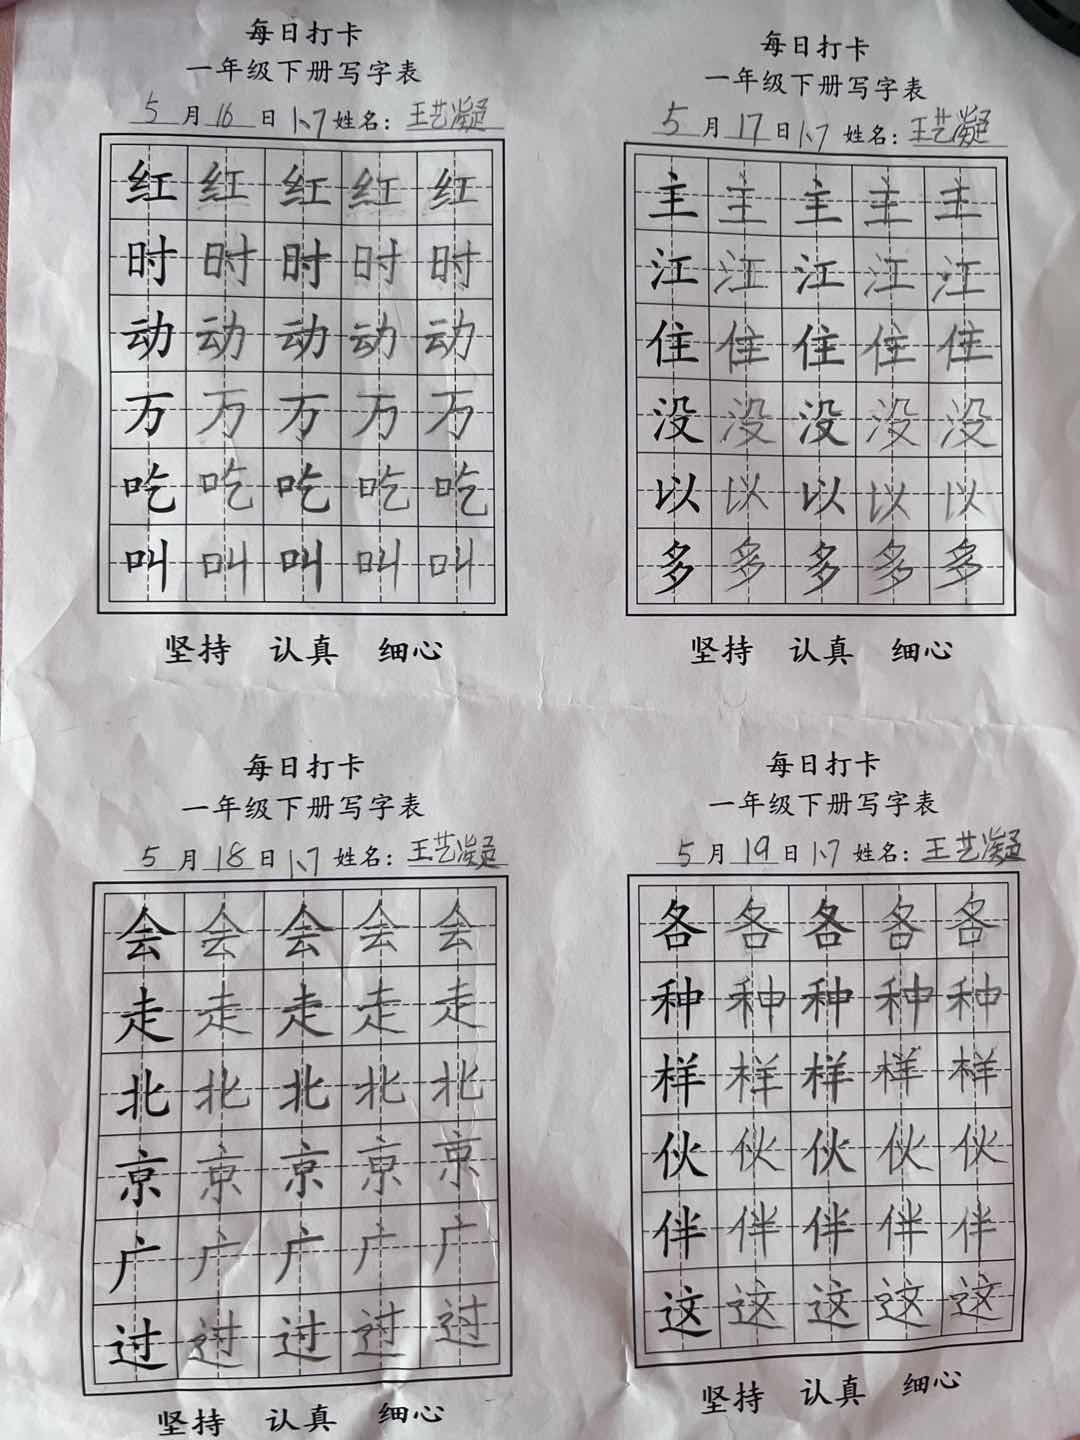 每日打卡
一年级下册写字表
5月16日 1、7 姓名：王艺凝
红红红红红
时时时时时
动动动动动
万万万万万
吃吃吃吃吃
叫叫叫叫叫
坚持 认真 细心
每日打卡
一年级下册写字表
5月17日 1、7 姓名：王艺凝
主主主主主
江江江江江
住住住住住
没没没没没
以以以以以
多多多多多
坚持 认真 细心
每日打卡
一年级下册写字表
5月18日 1、7 姓名：王艺凝
会会会会会
走走走走走
北北北北北
京京京京京
广广广广广
过过过过过
坚持 认真 细心
每日打卡
一年级下册写字表
5月19日 1、7 姓名：王艺凝
各各各各各
种种种种种
样样样样样
伙伙伙伙伙
伴伴伴伴伴
这这这这这
坚持 认真 细心